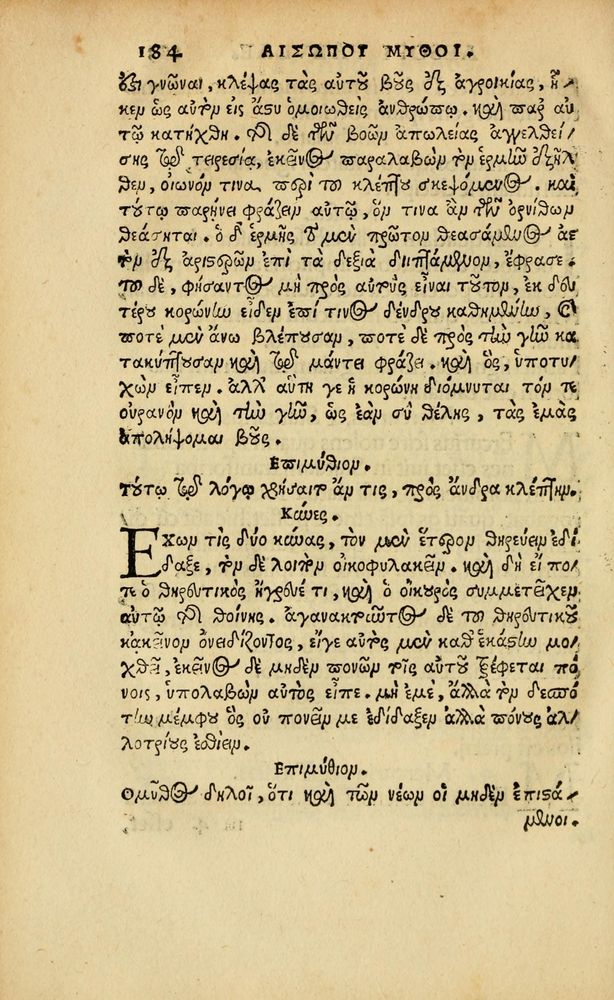 184 ΑΙΣΩΠΟΥ ΜΥΘΟΙ.
γνῶναι, κλέψας τὰς αὐτοῦ βοῦς ἐξ ἀγροικίας, ἧ-
κεν ὡς αὐτὸν εἰς ἄστυ ὁμοιωθεὶς ἀνθρώπῳ. καὶ παρ αὐ
τῷ κατήχθη. τῆς δὲ τῶν βοῶν ἀπωλείας ἀγγελθεί-
σης τῷ τειρεσίᾳ, ἐκεῖνος παραλαβὼν τὸν ἑρμῆν ἐξῆλ
θεν, οἰωνόν τινα περὶ τοῦ κλέπτου σκεψόμενος. καὶ
τούτῳ παρῄνει φράζειν αὐτῷ, ὅν τινα ἂν τῶν ὀρνίθων
θεάσηται. ὁ δ' ἑρμῆς τὸ μὲν πρῶτον θεασάμενος ἀε
τὸν ἐξ ἀριστερῶν ἐπὶ τὰ δεξιὰ διιπτάμενον, ἔφρασε.
τοῦ δὲ, φήσαντος μὴ πρὸς αὐτοὺς εἶναι τοῦτον, ἐκ δευ
τέρου κορώνην εἶδεν ἐπί τινος δένδρου καθημένην, καὶ
ποτὲ μὲν ἄνω βλέπουσαν, ποτὲ δὲ πρὸς τὴν γῆν κα
τακύπτουσαν καὶ τῷ μάντει φράζει. καὶ ὃς, ὑποτυ-
χὼν εἶπεν. ἀλλ' αὕτη γε ἡ κορώνη διόμνυται τόν τε
οὐρανὸν καὶ τὴν γῆν, ὡς ἐὰν σὺ θέλῃς, τὰς ἐμὰς
ἀπολήψομαι βοῦς.
Επιμύθιον.
Τούτῳ τῷ λόγῳ χρήσαιτ' ἄν τις, πρὸς ἄνδρα κλέπτην.
Κύνες.
Εχων τὶς δύο κύνας, τὸν μὲν ἕτερον θηρεύειν ἐδί
δαξε, τὸν δὲ λοιπὸν οἰκοφυλακεῖν. καὶ δὴ εἴ πο-
τε ὁ θηρευτικὸς ἤγρευέ τι, καὶ ὁ οἰκουρὸς συμμετεῖχεν
αὐτῷ τῆς θοίνης. ἀγανακτοῦντος δὲ τοῦ θηρευτικοῦ
κἀκεῖνον ὀνειδίζοντος, εἴγε αὐτὸς μὲν καθ' ἑκάστην μο-
χθεῖ, ἐκεῖνος δὲ μηδὲν πονῶν τοῖς αὐτοῦ τρέφεται πό
νοις, ὑπολαβὼν αὐτὸς εἶπε. μὴ ἐμέ, ἀλλὰ τὸν δεσπό
την μέμφου ὃς οὐ πονεῖν με ἐδίδαξεν ἀλλὰ πόνους ἀλ-
λοτρίους ἐσθίειν.
Επιμύθιον.
Ο μῦθος δηλοῖ, ὅτι καὶ τῶν νέων οἱ μηδὲν ἐπιστά-
μενοι.